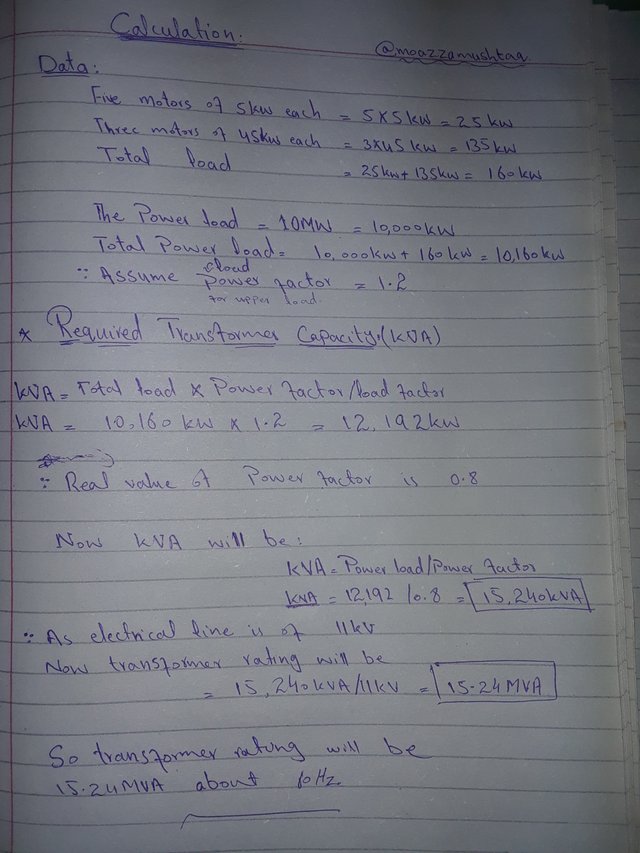 Calculation:
@moazzamushtaq
Data:
Five motors of 5kw each = 5x5kw = 25kw
Three motors of 45kw each = 3x45kw = 135kw
Total load = 25kw+135kw = 160kw
The Power load = 10MW = 10,000kW
Total Power load = 10,000kw+160kw = 10,160kw
∵ Assume power factor = 1.2
for upper load.
* Required Transformer Capacity.(KVA)
KVA = Total load x Power factor/load factor
KVA = 10,160 kw x 1.2 = 12,192kw
∵ Real value of Power factor is 0.8
Now KVA will be:
KVA = Power load/Power factor
KVA = 12,192 /0.8 = 15,240KVA
∵ As electrical line is of 11kv
Now transformer rating will be
= 15,240KVA/11KV = 15.24MVA
So transformer rating will be
15.24MVA about